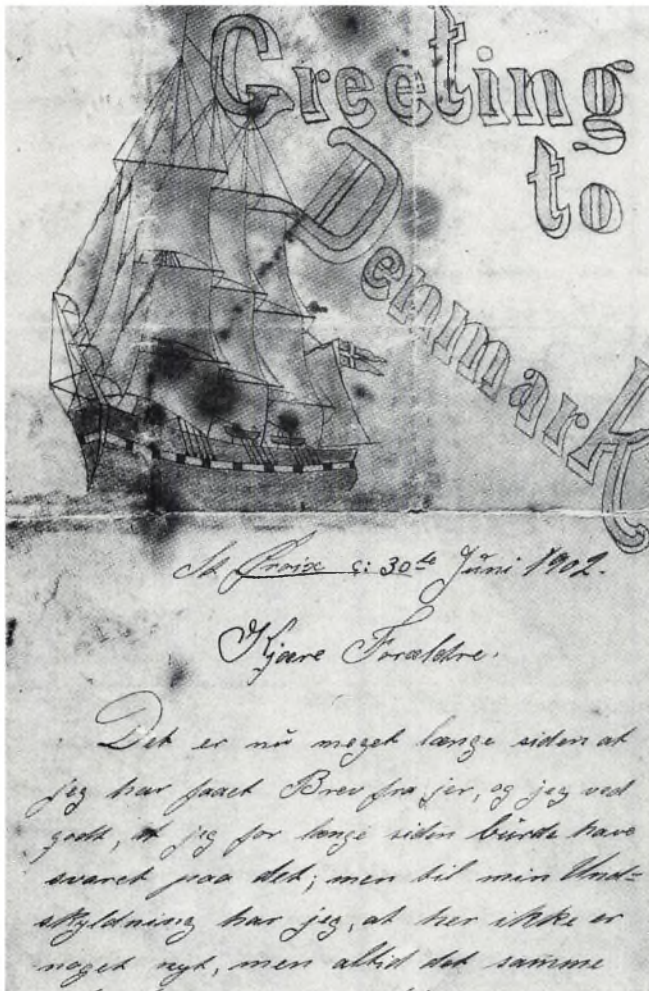 Greeting
to
Denmark
St Croix d: 30te Juni 1902.
Kjære Forældre.
Det er nu meget længe siden at
jeg har faaet Brev fra jer, og jeg ved
godt, at jeg for længe siden burde have
svaret paa det; men til min Und=
skyldning har jeg, at her ikke er
noget nyt, men altid det samme